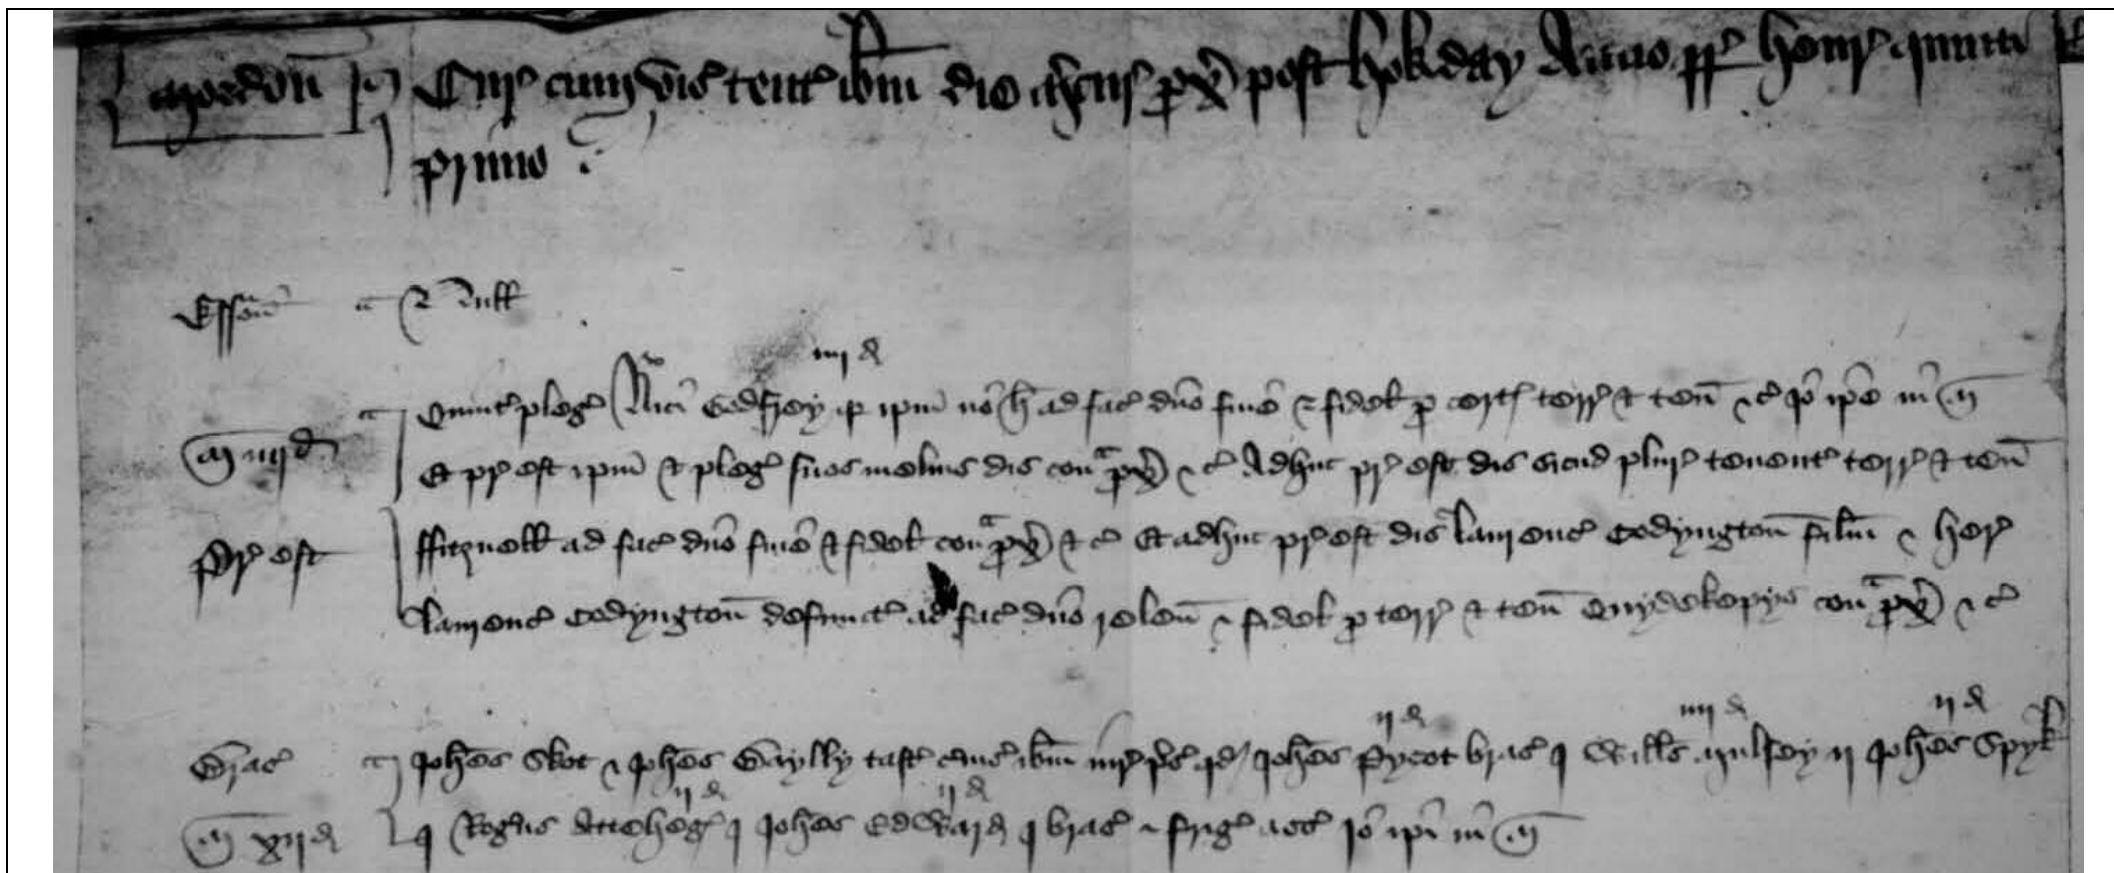 Moredon̄ Cur' cum vis' tent' ib̄m die M'cur' p'x' post hokday Anno rr' Henr' quinti
primo
Esson̄ Null
iiij d
Quint' pleg' Ric̄i Godfrey qr ip̄m nō h̄ ad fac' dn̄o finē & fidel' p cert' terr' & ten̄ &c' Iō ip̄e in m̄ia
m̄ia iiij d Et pr' est ip̄m & pleg' suos melius dis' con̄ p'x' &c' Adhuc pr' est dis' sicud plur' tenent' terr' & ten̄
Pr' est ffitznell ad fac' dn̄o finē & fidel' con̄ p'x' & c' Et adhuc pr' est dis' laurenc' Codyngton̄ filiū & her'
laurenc' Codyngton̄ defunct' ad fac' dn̄o relen̄ & fidel' p terr' & ten̄ con̄ p'x' & c'
ij d iiij d ij d
Brac' Joh̄es Skot & Joh̄es Baylly tast' c'uis' ib̄m iur' p's' qd Joh̄es Pycot brac' j Will̄s Mulsey ij Joh̄es Spyk
ij d ij d
m̄ia xij d j Rog'us Attehegg' j Joh̄es Edward j brac' & freg' ass' Iō ip̄i in m̄ia